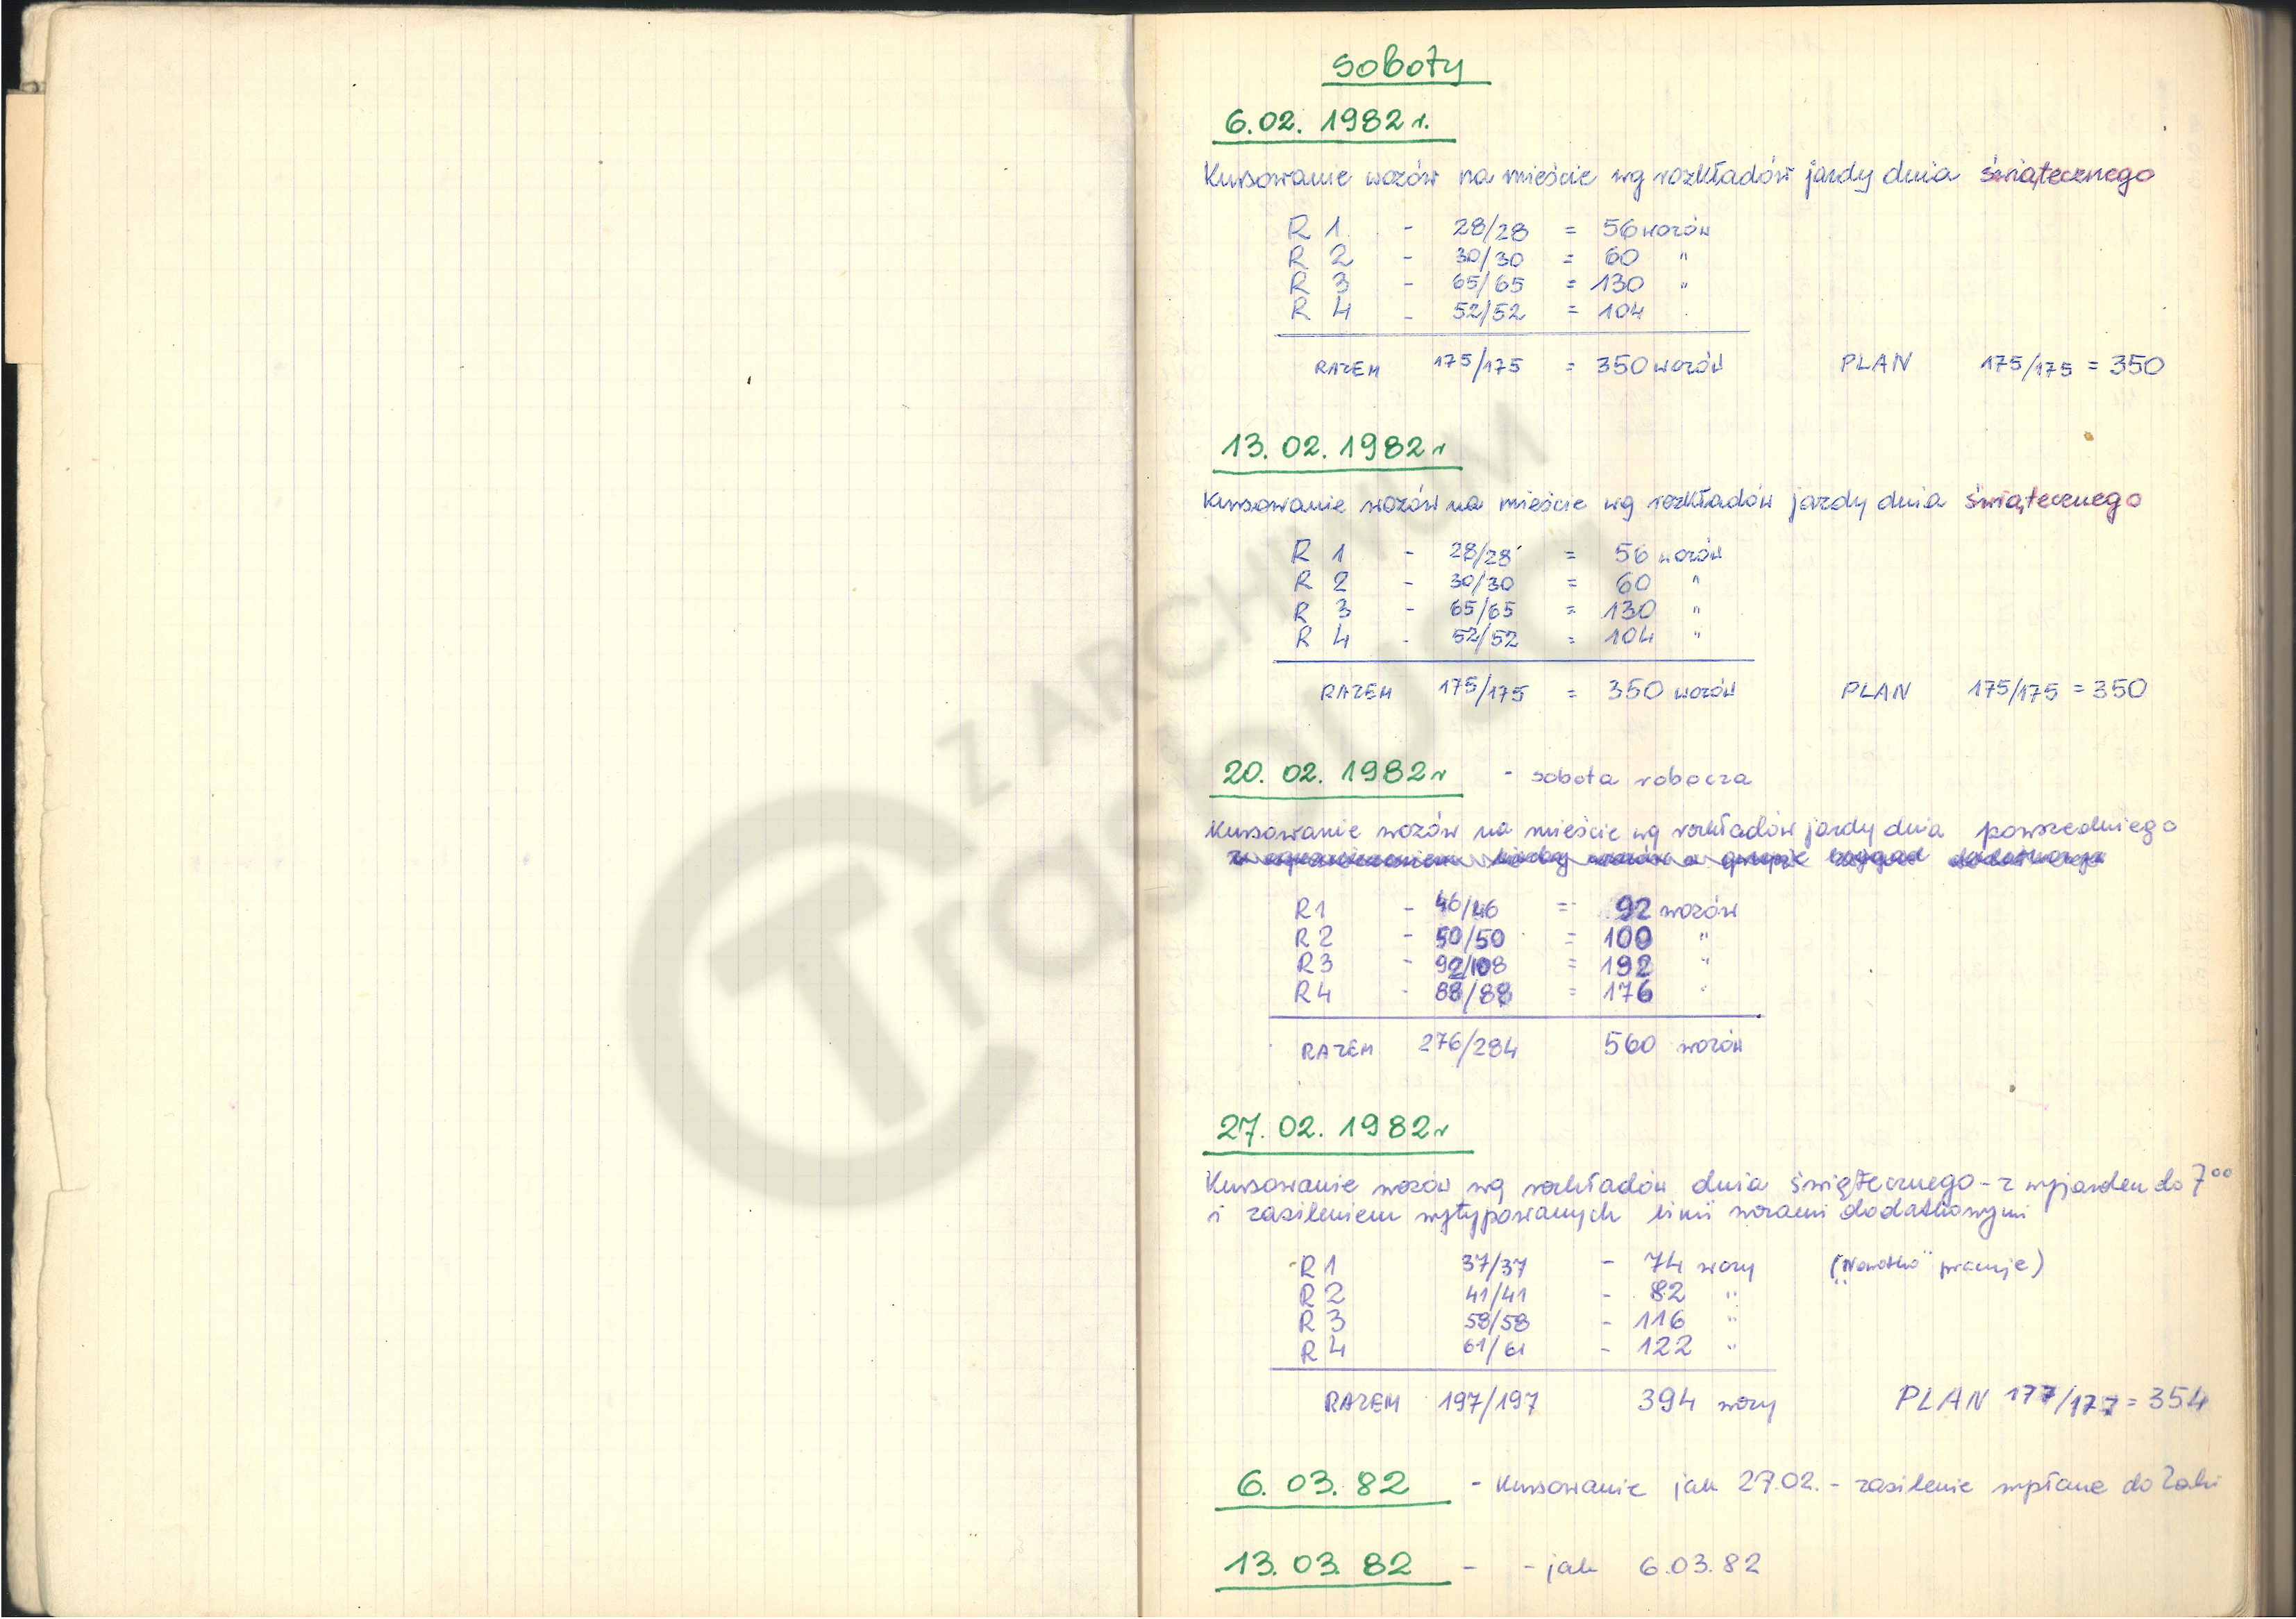 soboty
6.02. 1982 r.
Kursowanie wozów na mieście wg rozkładów jazdy dnia świątecznego
R 1 - 28/28 = 56 wozów
R 2 - 30/30 = 60 "
R 3 - 65/65 = 130 "
R 4 - 52/52 = 104
RAZEM 175/175 = 350 wozów PLAN 175/175 = 350
13. 02. 1982 r
Kursowanie wozów na mieście wg rozkładów jazdy dnia świątecznego
R 1 - 28/28 = 56 wozów
R 2 - 30/30 = 60 "
R 3 - 65/65 = 130 "
R 4 - 52/52 = 104 "
RAZEM 175/175 = 350 wozów PLAN 175/175 = 350
20. 02. 1982 r - sobota robocza
Kursowanie wozów na mieście wg rozkładów jazdy dnia powszedniego
R1 - 46/46 = 92 wozów
R2 - 50/50 = 100 "
R3 - 92/108 = 192 "
R4 - 88/88 = 176 "
RAZEM 276/284 560 wozów
27. 02. 1982 r
Kursowanie wozów wg rozkładów dnia świątecznego - z wyjazdem do 7⁰⁰
i zasileniem wytypowanych linii wozami dodatkowymi
R 1 37/37 - 74 wozy pracuje)
R 2 41/41 - 82 "
R 3 58/58 - 116 "
R 4 61/61 - 122 "
RAZEM 197/197 394 wozy PLAN 177/177 = 354
6. 03. 82 - Kursowanie jak 27.02. - zasilenie do
13. 03. 82 - - jak 6.03.82
Z ARCHIWUM
Trasbusa